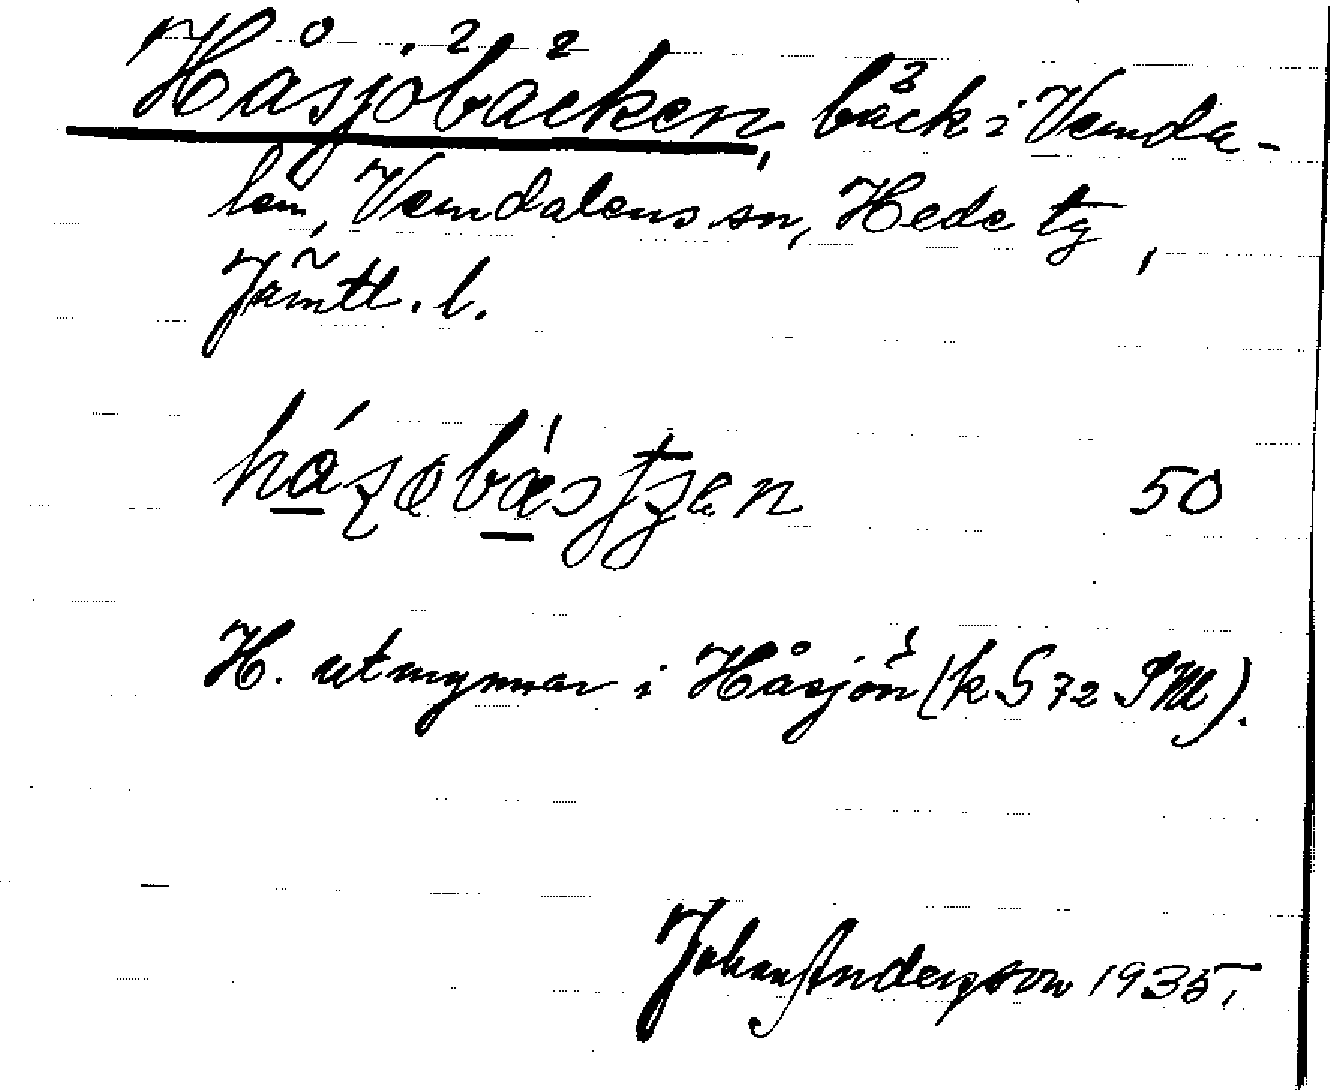 Håsjöbäcken, bäck i Vemda-
len, Vemdalens sn, Hede tg,
Jämtt. l.
50
H. utmynnar i Håsjön (k S 72 SM).
Johan Anderson 1935.